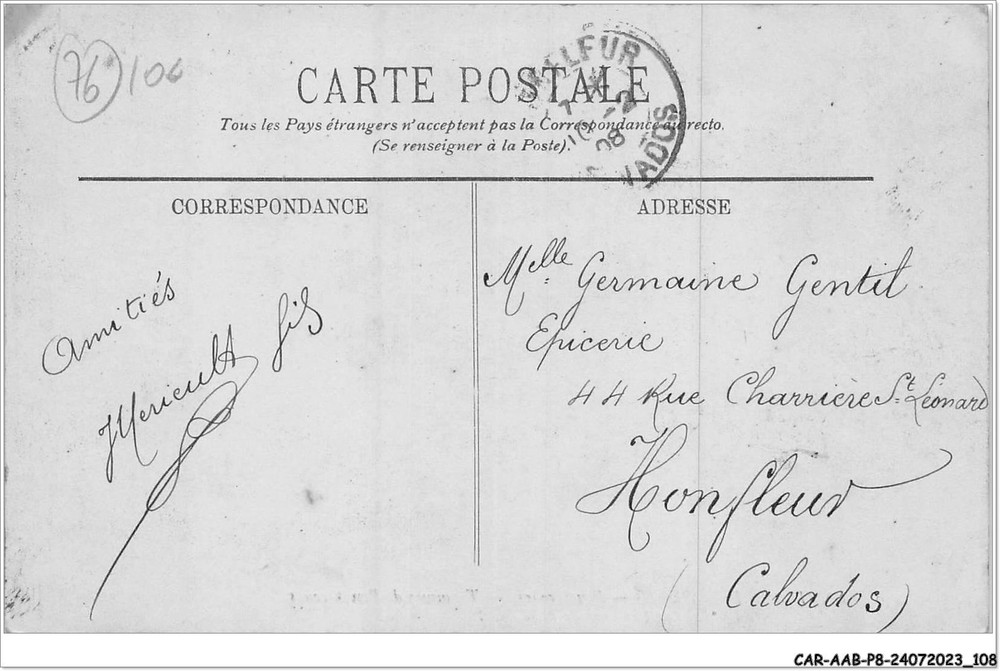 76 106
CARTE POSTALE
Tous les Pays étrangers n'acceptent pas la Correspondance au recto.
(Se renseigner à la Poste).
7
10 -2
08
CORRESPONDANCE
Amitiés
fils
ADRESSE
Melle Germaine Gentil
Epicerie
44 Rue Charrière St Léonard
Honfleur
(Calvados)
CAR-AAB-P8-24072023_108